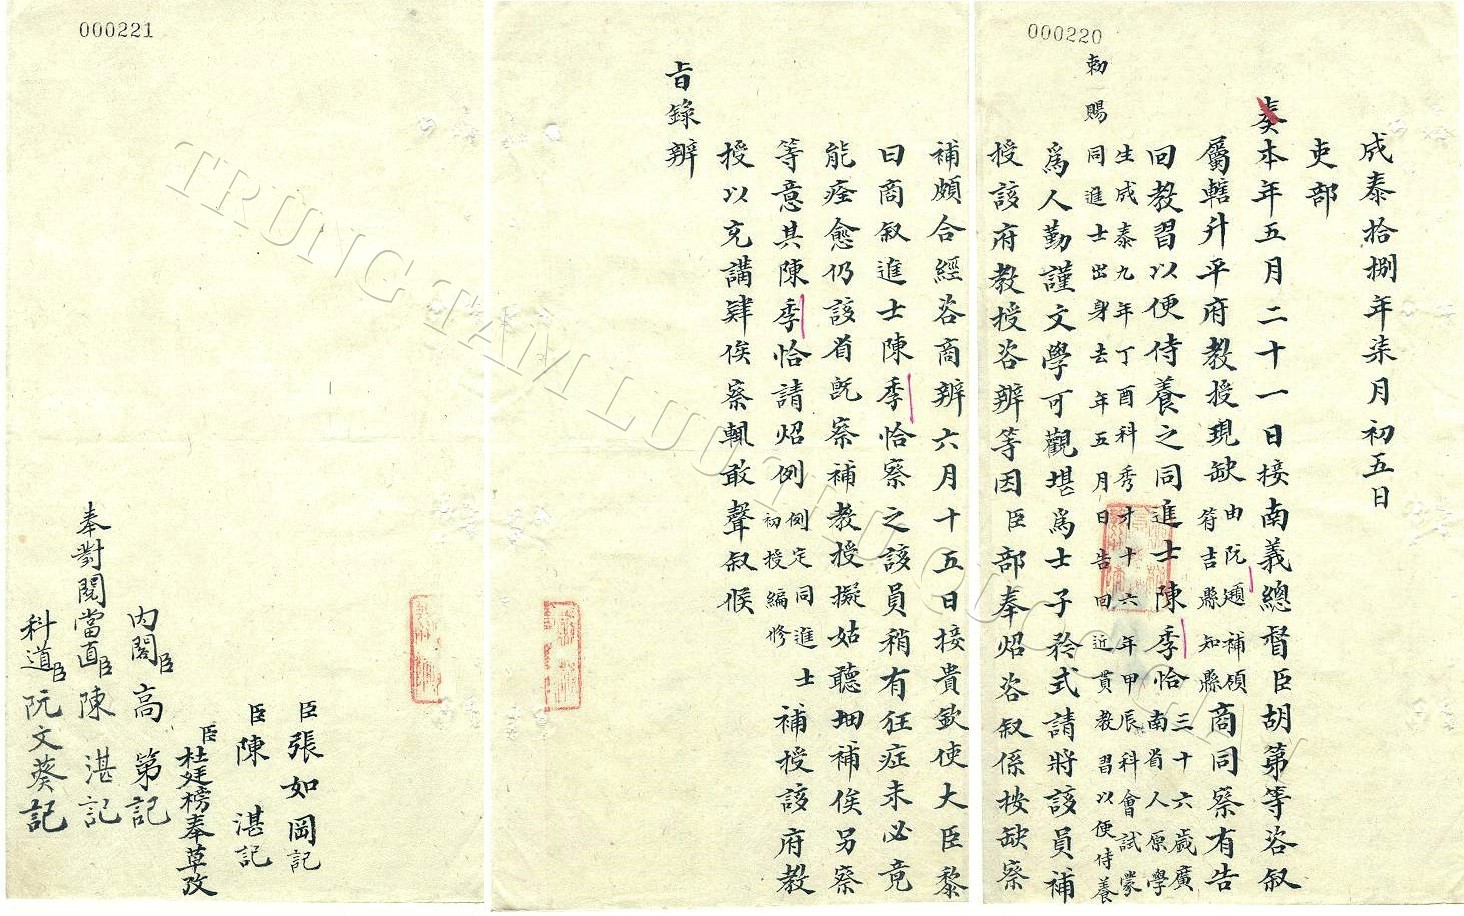 000220
成泰拾捌年柒月初五日
吏部
奏本年五月二十一日接南義總督臣胡第等咨叙
屬轄升平府教授現缺由阮遡補領符吉縣知縣商同察有告
回教習以便侍養之同進士陳季恰三十六歲廣南省人原學
生成泰九年丁酉科秀才十六年甲辰科會試蒙
敕賜同進士出身去年五月日告回近貫教習以便侍養
爲人勤謹文學可觀堪爲士子矜式請將該員補
授該府教授咨辨等因臣部奉炤咨叙係按缺察
補頗合經咨商辨六月十五日接貴欽使大臣黎
曰商叙進士陳季恰察之該員稍有狂症未必竟
能痊愈仍該省既察補教授擬姑聽細補俟另察
等意其陳季恰請炤例例定同進士初授編修補授該府教
授以充講肄俟察輒敢聲叙候
旨錄辨
000221
臣張如岡記
臣陳湛記
臣杜廷榜奉草攷
內閣臣高第記
奉對閱當直臣陳湛記
科道臣阮文葵記
TRUNG TAM LUU TRU QUOC GIA